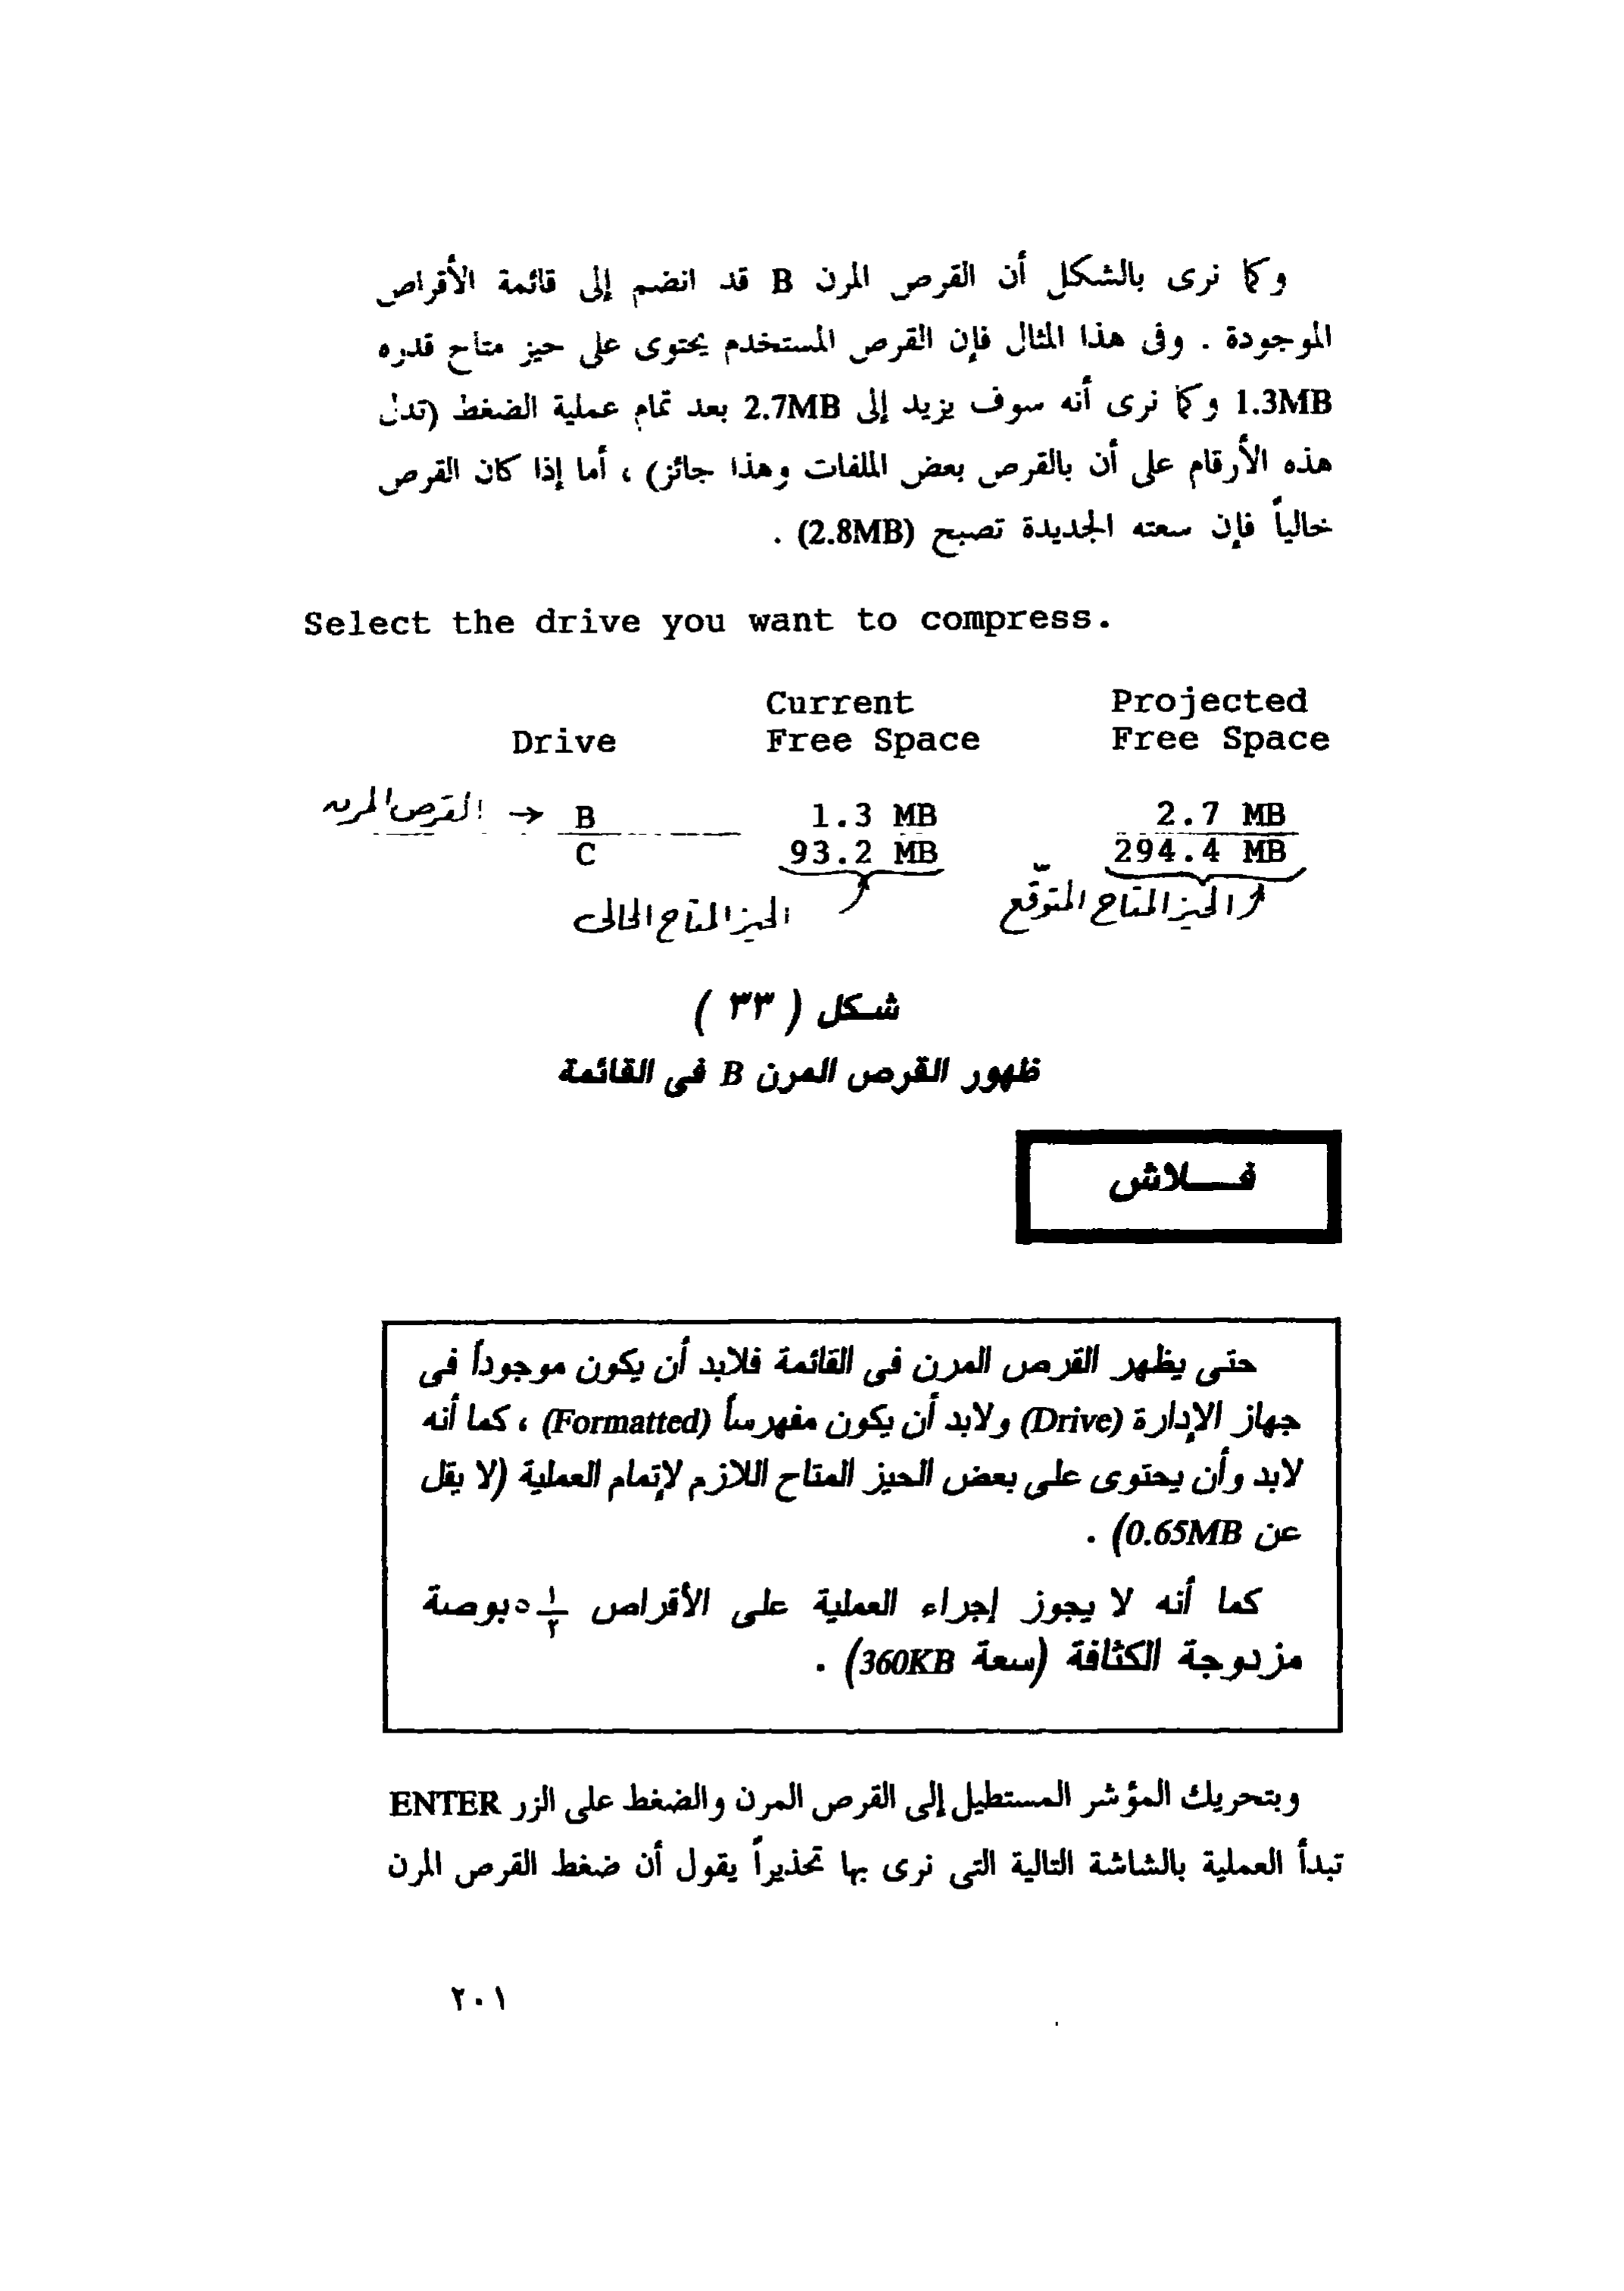 وكما نرى بالشكل أن القرص المرن B قد انضم إلى قائمة الأقراص
الموجودة . وفى هذا المثال فإن القرص المستخدم يحتوى على حيز متاح قدره
1.3MB وكما نرى أنه سوف يزيد إلى 2.7MB بعد تمام عملية الضغط (تدل
هذه الأرقام على أن بالقرص بعض الملفات وهذا جائز) ، أما إذا كان القرص
خالياً فإن سعته الجديدة تصبح (2.8MB) .
Select the drive you want to compress.
Current Projected
Drive Free Space Free Space
القرص المرن → B 1.3 MB 2.7 MB
C 93.2 MB 294.4 MB
الحيز المتاح الحالى الحيز المتاح المتوقّع
شكل ( ٣٣ )
ظهور القرص المرن B فى القائمة
فــلاش
حتى يظهر القرص المرن فى القائمة فلابد أن يكون موجوداً فى
جهاز الإدارة (Drive) ولابد أن يكون مفهرساً (Formatted) ، كما أنه
لابد وأن يحتوى على بعض الحيز المتاح اللازم لإتمام العملية (لا يقل
عن 0.65MB) .
كما أنه لا يجوز إجراء العملية على الأقراص ٥ ١/٢ بوصة
مزدوجة الكثافة (سعة 360KB) .
وبتحريك المؤشر المستطيل إلى القرص المرن والضغط على الزر ENTER
تبدأ العملية بالشاشة التالية التى نرى بها تحذيراً يقول أن ضغط القرص المرن
٢٠١